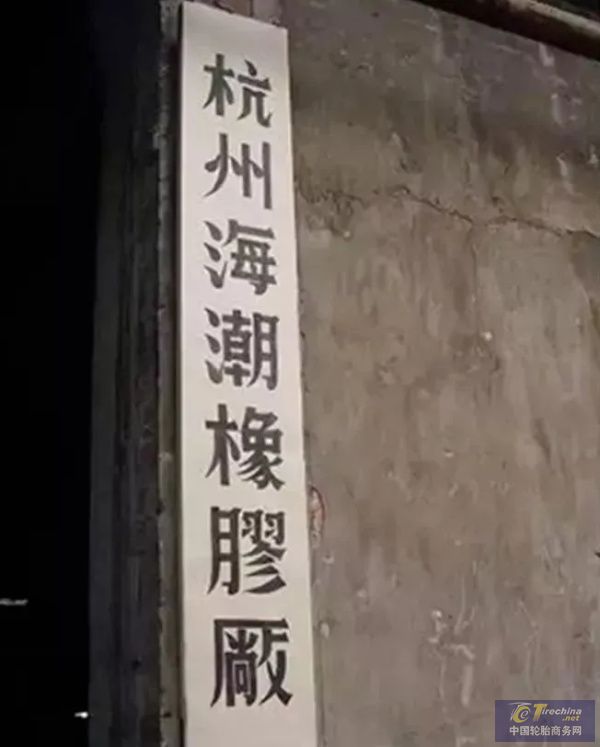 杭州海潮橡膠廠
Tirechina
.net
中国轮胎商务网